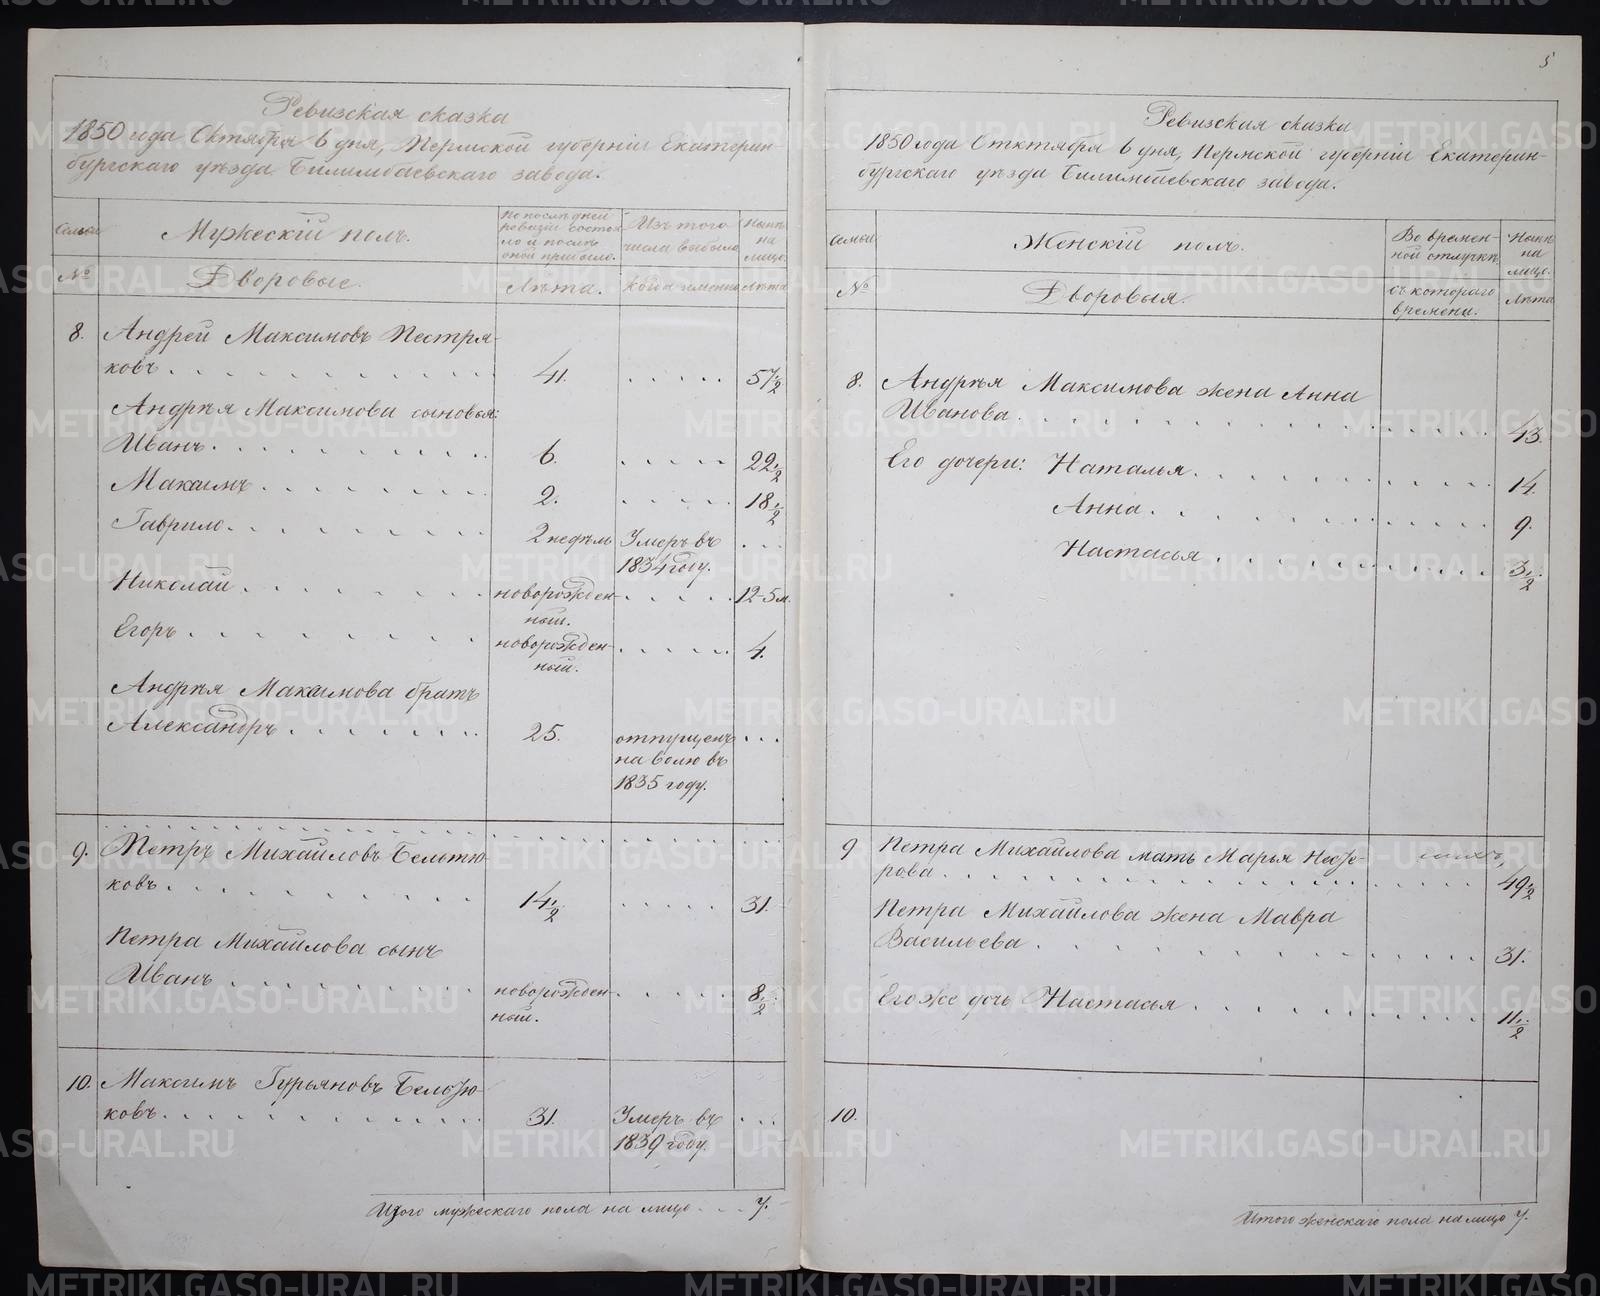 Ревизская сказка
1850 года Октября 6 дня, Пермской губернiи Екатерин-
бургскаго уѣзда Билимбаевскаго завода.
Семьи
Мужескiй полъ.
По послѣдней
ревизiи состоя-
ло и послѣ
оной прибыло.
Изъ того
числа выбыло
Нынѣ
на
лицо.
№
Дворовые.
Лѣта.
Когда именно
Лѣта
8. Андрей Максимовъ Пестря-
ковъ . . . . . . . . . . 41. . . . . . 57 1/2
Андрѣя Максимова сыновья:
Иванъ. . . . . . . . . 6. . . . . . 22 1/2
Максимъ . . . . . . . 2. . . . . . 18 1/2
Гаврило. . . . . . . . 2 недѣль Умеръ въ . . .
1834 году.
Николай . . . . . . . новорожден- . . . . . 12-5 м.
ный.
Егоръ . . . . . . . . новорожден- . . . . . 4.
ный.
Андрѣя Максимова братъ
Александръ . . . . . . 25. отпущенъ . . .
на волю въ
1835 году.
9. Петръ Михайловъ Бельтю-
ковъ . . . . . . . . 14 1/2 . . . . . 31.
Петра Михайлова сынъ
Иванъ . . . . . . . . новорожден- . . . . . 8 1/2
ный.
10. Максимъ Гурьяновъ Бельтю-
ковъ. . . . . . . . . 31. Умеръ въ . . .
1839 году.
Итого мужескаго пола на лицо . . . 7.
5
Ревизская сказка
1850 года Отктября 6 дня, Пермской губернiи Екатерин-
бургскаго уѣзда Билимбаевскаго завода.
Семьи
Женскiй полъ.
Во времен-
ной отлучкѣ
Нынѣ
на
лицо.
№
Дворовыя.
съ котораго
времени.
Лѣта
8. Андрѣя Максимова жена Анна
Иванова . . . . . . . . . . . 43.
Его дочери: Наталья. . . . . . . . 14.
Анна. . . . . . . . . 9.
Настасья . . . . . . . 3 1/2
9 Петра Михайлова мать Марья Несте-
рова. . . . . . . . . . . . 49 1/2
Петра Михайлова жена Мавра
Васильева . . . . . . . . . . 31.
Его же дочь Настасья . . . . . . . 11 1/2
10.
Итого женскаго пола на лицо 7.
METRIKI.GASO-URAL.RU